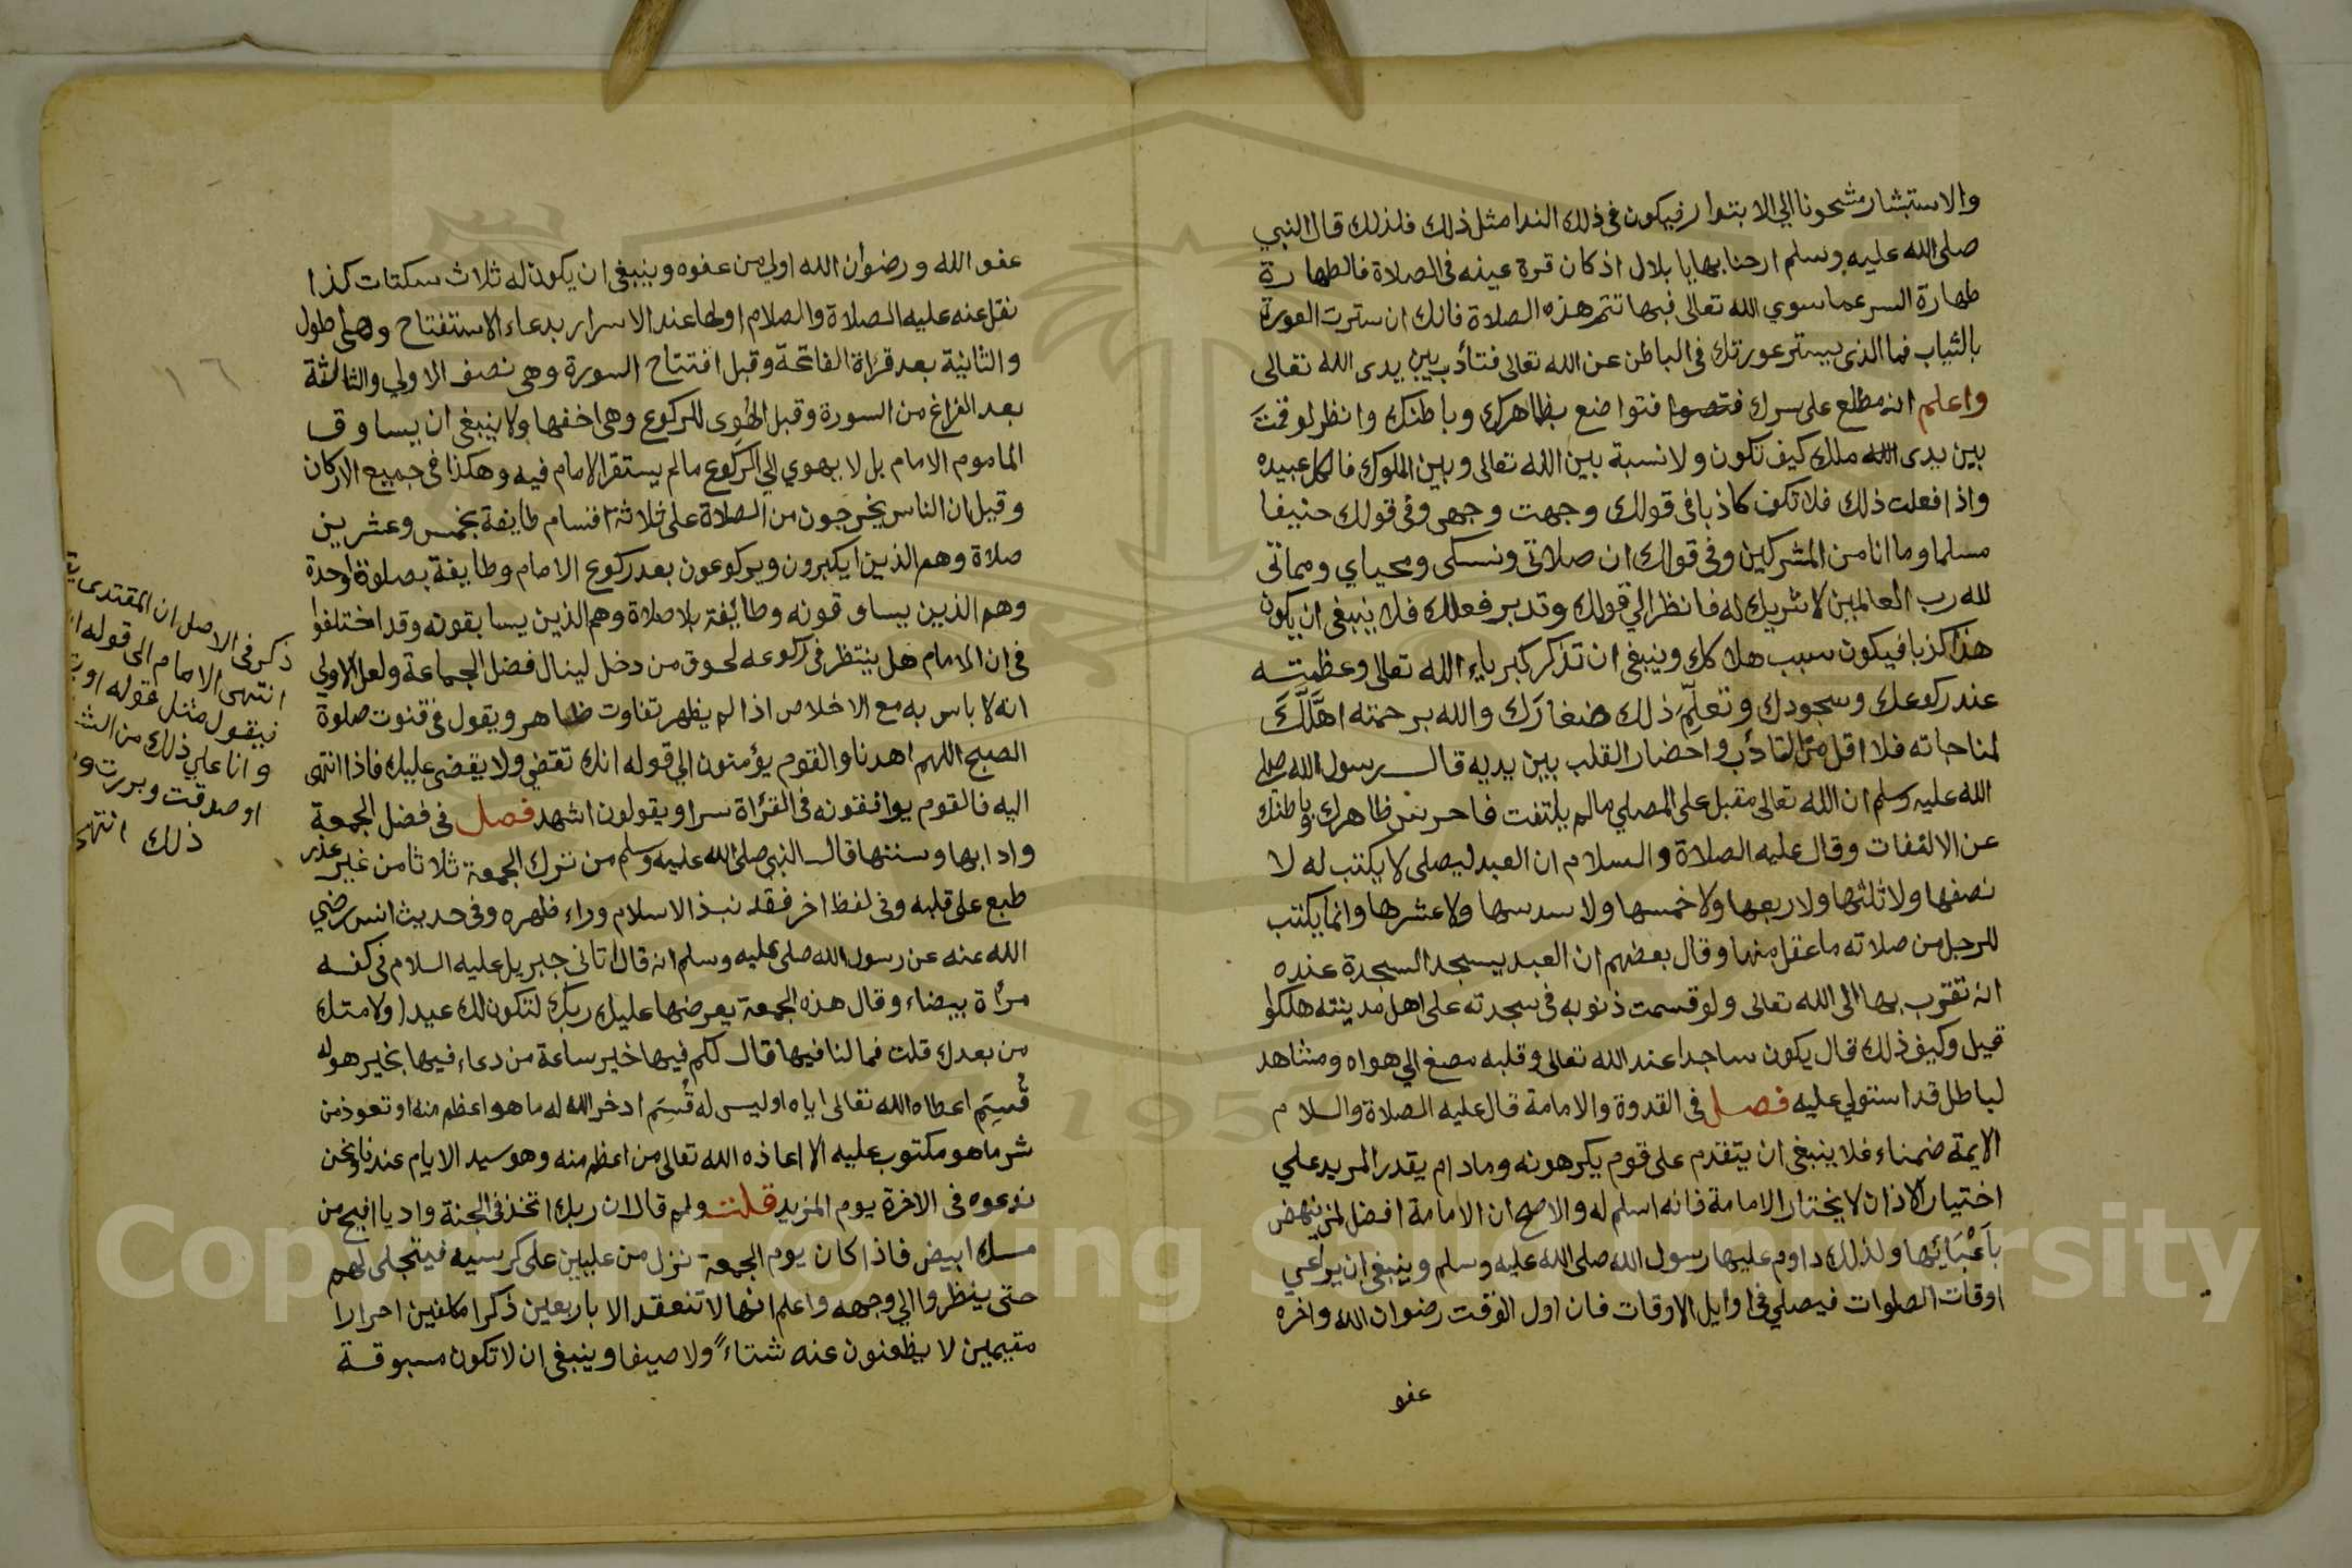 والاستبشار مشحونا الي الابتدار فيكون في ذلك الندا مثل ذلك فلذلك قال النبي
صلى الله عليه وسلم ارحنا بها يا بلال اذ كان قرة عينه في الصلاة فالطهارة
طهارة السر عما سوي الله تعالى فبها تتم هذه الصلاة فانك ان سترت العورة
بالثياب فما الذى يستر عورتك في الباطن عن الله تعالى فتأدب بين يدى الله تعالى
واعلم انه مطلع على سرك فتواضع بظاهرك وباطنك وانظر لو قمت
بين يدى ملك كيف تكون ولا نسبة بين الله تعالى وبين الملوك فالكل عبيده
واذا فعلت ذلك فلا تكن كاذبا في قولك وجهت وجهي وفي قولك حنيفا
مسلما وما انا من المشركين وفي قولك ان صلاتي ونسكى ومحياي ومماتي
لله رب العالمين لا شريك له فانظر الي قولك وتدبر فعلك فلا ينبغي ان يكون
هذا كذبا فيكون سبب هلاكك وينبغي ان تذكر كبرياء الله تعالى وعظمته
عند ركوعك وسجودك وتعلم ذلك صغارك والله برحمته اهّلك
لمناجاته فلا اقل من التأدب واحضار القلب بين يديه قال رسول الله صلى
الله عليه وسلم ان الله تعالى مقبل على المصلي ما لم يلتفت فاحرس ظاهرك وباطنك
عن الالتفات وقال عليه الصلاة والسلام ان العبد ليصلى لا يكتب له لا
نصفها ولا ثلثها ولا ربعها ولا خمسها ولا سدسها ولا عشرها وانما يكتب
للرجل من صلاته ما عقل منها وقال بعضهم ان العبد يسجد السجدة عنده
انه تقرب بها الى الله تعالى ولو قسمت ذنوبه في سجدته على اهل مدينته هلكوا
قيل وكيف ذلك قال يكون ساجدا عند الله تعالى وقلبه مصغ الي هواه ومشاهد
لباطل قد استولي عليه فصل في القدوة والامامة قال عليه الصلاة والسلام
الايمة ضمناء فلا ينبغي ان يتقدم على قوم يكرهونه وما دام يقدر المريد علي
اختيار الاذان لا يختار الامامة فانه اسلم له والاصح ان الامامة افضل لمن ينهض
باعبائها ولذلك داوم عليها رسول الله صلى الله عليه وسلم وينبغي ان يراعي
اوقات الصلوات فيصلي في اوايل الاوقات فان اول الوقت رضوان الله واخره
عفو
١٦
عفو الله ورضوان الله اولي من عفوه وينبغي ان يكون له ثلاث سكتات كذا
نقل عنه عليه الصلاة والسلام اولها عند الاسرار بدعاء الاستفتاح وهي اطول
والثانية بعد قراة الفاتحة وقبل افتتاح السورة وهي نصف الاولي والثالثة
بعد الفراغ من السورة وقبل الهوي للركوع وهي اخفها ولا ينبغي ان يساوق
الماموم الامام بل لا يهوي الي الركوع ما لم يستقر الامام فيه وهكذا في جميع الاركان
وقيل ان الناس يخرجون من الصلاة على ثلاثة اقسام طايفة بخمس وعشرين
صلاة وهم الذين يكبرون ويركوعون بعد ركوع الامام وطايفة بصلوة واحدة
وهم الذين يساوقونه وطائفة بلا صلاة وهم الذين يسابقونه وقد اختلفوا
في ان الامام هل ينتظر في ركوعه لحوق من دخل لينال فضل الجماعة ولعل الاولي
انه لا باس به مع الاخلاص اذا لم يظهر تفاوت ظاهر ويقول في قنوت صلوة
الصبح اللهم اهدنا والقوم يؤمنون الي قوله انك تقضي ولا يقضى عليك فاذا انتهى
اليه فالقوم يوافقونه في القراة سرا ويقولون اشهد فصل في فضل الجمعة
وادابها وسننها قال النبي صلى الله عليه وسلم من ترك الجمعة ثلاثا من غير عذر
طبع على قلبه وفي لفظ اخر فقد نبذ الاسلام وراء ظهره وفي حديث انس رضي
الله عنه عن رسول الله صلى عليه وسلم انه قال اتاني جبريل عليه السلام في كفه
مراة بيضاء وقال هذه الجمعة يعرضها عليك ربك لتكون لك عيدا ولامتك
من بعدك قلت فما لنا فيها قال لكم فيها خير ساعة من دعاء فيها بخير هو له
قُسِم اعطاه الله تعالى اياه اوليس له قُسِم ادخر الله له ما هو اعظم منه او تعوذ من
شر ما هو مكتوب عليه الا اعاذه الله تعالى من اعظم منه وهو سيد الايام عندنا ونحن
ندعوه في الاخرة يوم المزيد قلت ولم قال ان ربك اتخذ في الجنة واديا افيح من
مسك ابيض فاذا كان يوم الجمعة نزل من عليين على كرسيه فيتجلى لهم
حتى ينظروا الي وجهه واعلم انها لا تنعقد الا باربعين ذكرا مكلفين احرارا
مقيمين لا يظعنون عنه شتاءً ولا صيفا وينبغي ان لا تكون مسبوقة
ذكر في الاصل ان المقتدى
انتهى الامام الى قوله
فيقول مثل قوله او
وانا علي ذلك من
او صدقت وبررت و
ذلك انتهى
Copyright © King Saud University
195